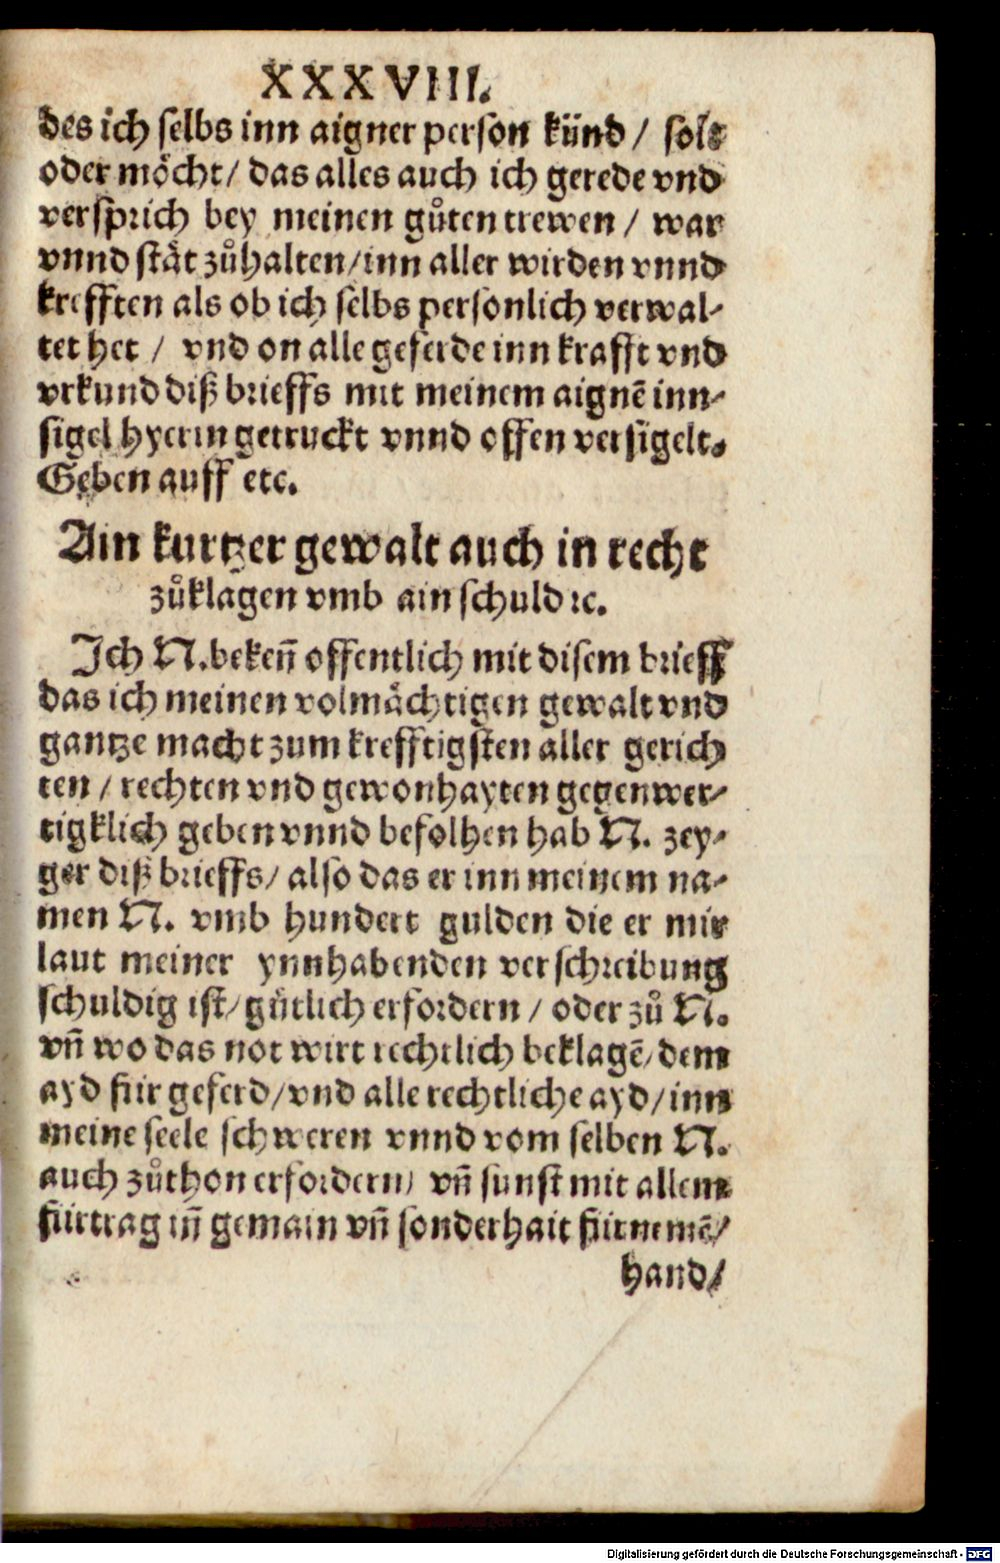 XXXVIII.
des ich selbs inn aigner person künd / solt
oder möcht / das alles auch ich gerede vnd
versprich bey meinen gůten trewen / war
vnnd stät zůhalten / inn aller wirden vnnd
krefften als ob ich selbs personlich verwal-
tet het / vnd on alle geferde inn krafft vnd
vrkund diß brieffs mit meinem aignē inn-
sigel hyerin getruckt vnnd offen versigelt.
Geben auff etc.
Ain kurtzer gewalt auch in recht
zůklagen vmb ain schuld ꝛc.
Ich N. bekeñ offentlich mit disem brieff
das ich meinen volmächtigen gewalt vnd
gantze macht zum krefftigsten aller gerich
ten / rechten vnd gewonhayten gegenwer-
tigklich geben vnnd befolhen hab N. zey-
ger diß brieffs / also das er inn meinem na-
men N. vmb hundert gulden die er mir
laut meiner ynnhabenden verschreibung
schuldig ist / gütlich erfordern / oder zů N.
vñ wo das not wirt rechtlich beklagē / dem
ayd für geferd / vnd alle rechtliche ayd / inn
meine seele schweren vnnd vom selben N.
auch zůthon erfordern / vñ sunst mit allem
fürtrag iñ gemain vñ sonderhait fürnemē /
hand /
Digitalisierung gefördert durch die Deutsche Forschungsgemeinschaft - DFG